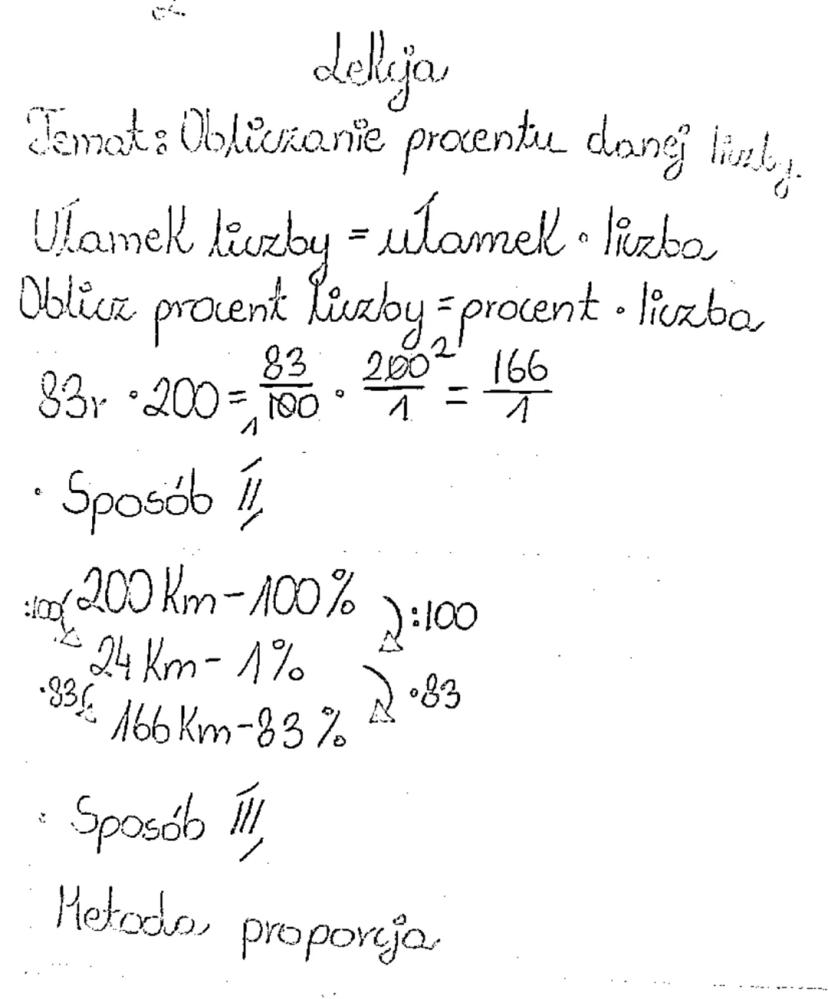 Lekcja
Temat: Obliczanie procentu danej liczby.
Ułamek liczby = ułamek · liczba
Oblicz procent liczby = procent · liczba
83r · 200 = 83/100 1 · 200/1 2 = 166/1
· Sposób II
:100 200 Km - 100% :100
24 Km - 1%
·83 166 Km - 83 % ·83
· Sposób III
Metoda proporcja